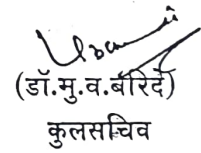 (डॉ.मु.व.बॉरिदे)
कुलसचिव